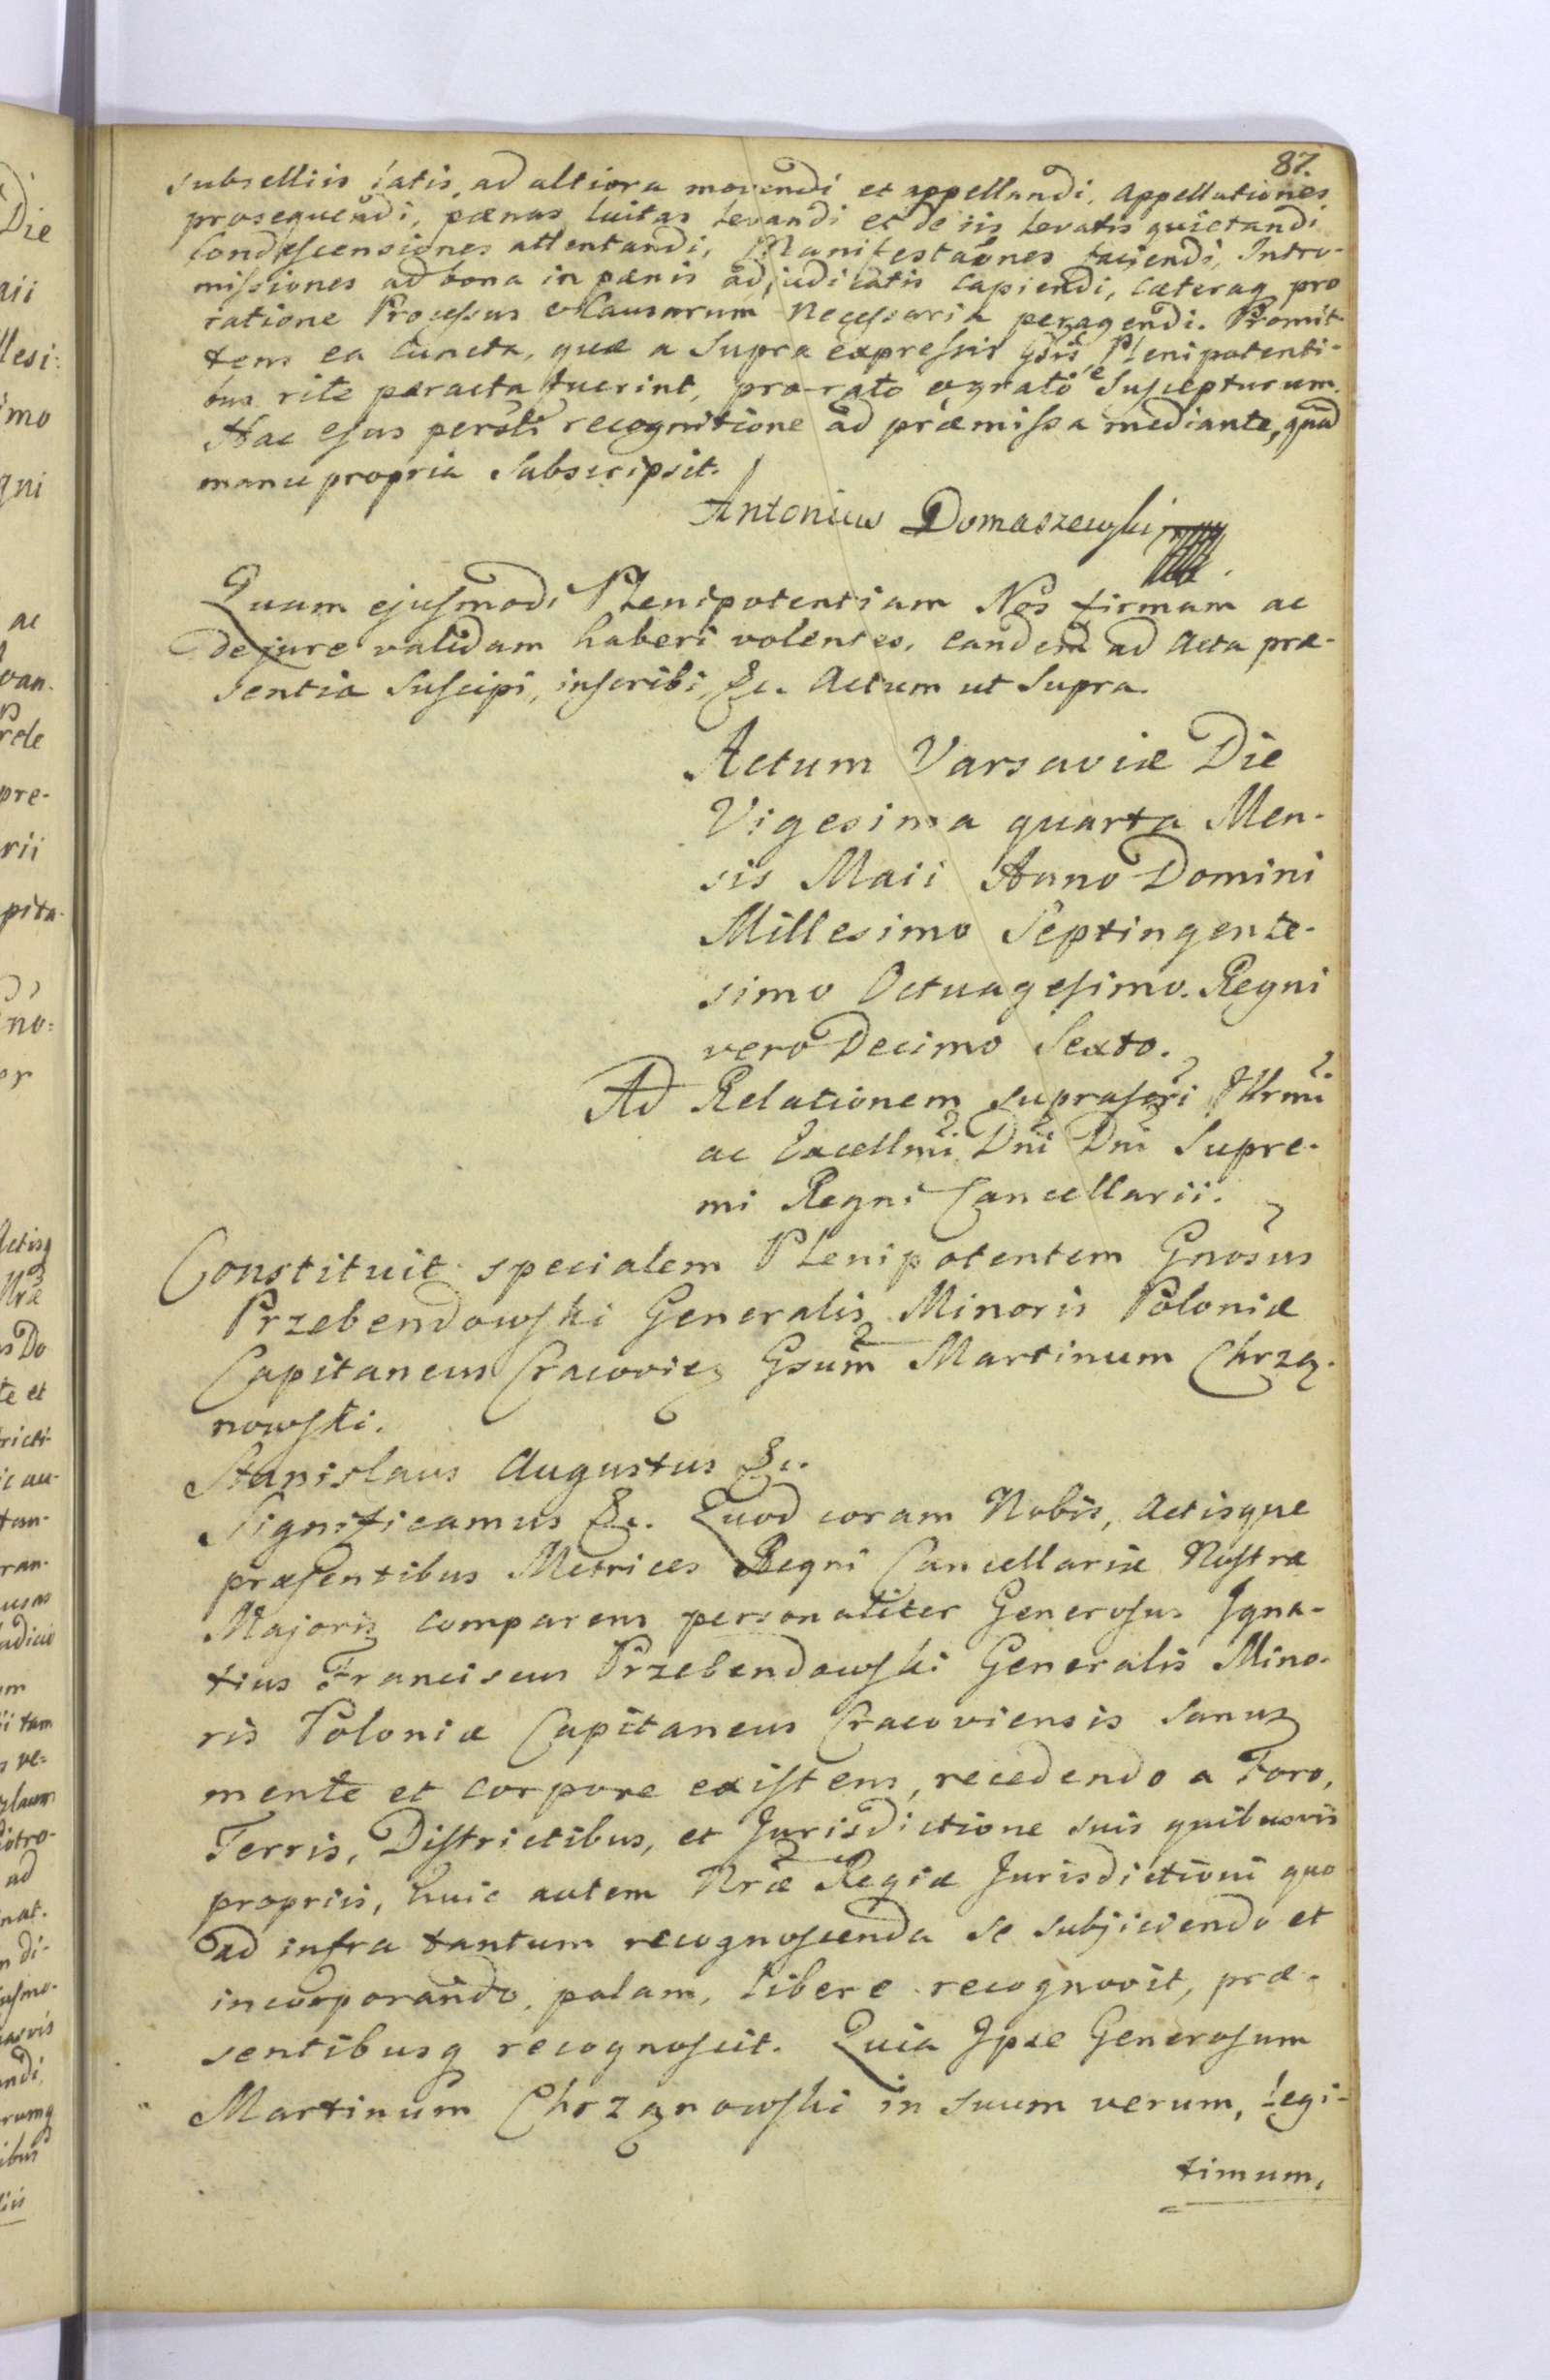 87.
subselliis latis, ad altiora movendi et appellandi, Appellationes
prosequendi, pænas luitas levandi et de iis levatis quietandi
Condescensiones attentandi, Manifestaões faciendi, Intro-
missiones ad bona in pænis adjudicatis Capiendi, Cæteraq pro
ratione Processus & Causarum Necessaria peragendi. Promit-
tens ea Cuncta, quæ a Supra expressis Gsis Plenipotenti-
bus rite peracta fuerint, pro rato et grato se Suscepturum.
Hac ejus persoli recognitione ad præmissa mediante, quã
manu propria Subscripsit.
Antonius Domaszewski mp
Quam ejusmodi Plenipotentiam Nos firmam ac
de jure validam haberi volentes, eandem ad Acta præ-
sentia Suscipi, inscribi &c. Actum ut Supra.
Actum Varsaviæ Die
Vigesima quarta Men-
sis Maii Anno Domini
Millesimo Septingente-
simo Octuagesimo. Regni
vero Decimo Sexto.
Ad Relationem suprascri Illrmi
ac Excellmi Dni Dni Supre-
mi Regni Cancellarii.
Constituit specialem Plenipotentem Gnosus
Przebendowski Generalis Minoris Poloniæ
Capitaneus Cracovien Gsum Martinum Chrzą-
nowski.
Stanislaus Augustus &c.
Significamus &c. Quod coram Nobis, Actisque
præsentibus Metrices Regni Cancellariæ Nostræ
Majoris comparens personaliter Generosus Igna-
tius Franciscus Przebendowski Generalis Mino-
ris Poloniæ Capitaneus Cracoviensis sanus
mente et corpore existens, recedendo a Foro,
Terris, Districtibus, et Jurisdictione suis quibusvis
propriis, huic autem Nræ Regiæ Jurisdictioni quo
ad infra tantum recognoscenda se subjiciendo et
incorporando, palam, libere recognovit, præ-
sentibusq recognoscit. Quia Ipse Generosum
Martinum Chrząnowski in suum verum, legi-
timum,